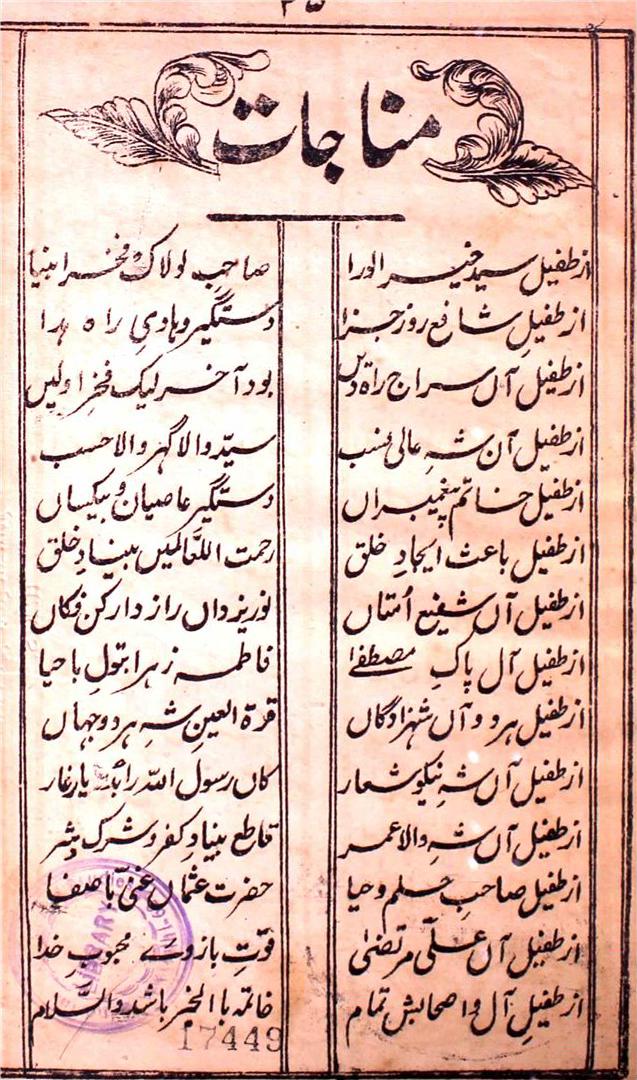 ۳۵
مناجات
از طفیل سید خیر الورا صاحبِ لولاک فخر انبیا
از طفیلِ شافع روز جزا دستگیر و ہادیِ راہ ہدا
از طفیل آں سراج راہ دیں بود آخر لیک فخرِ اولیں
از طفیل آن شہِ عالی نسب سیّد والا گہر والا حسب
از طفیل خاتم پیغمبراں دستگیر عاصیان و بیکساں
از طفیل باعث ایجادِ خلق رحمت اللعالمیں بنیادِ خلق
از طفیل آں شفیع اُمتاں نور یزداں راز دار کن فکاں
از طفیل آل پاکِ مصطفےٰ فاطمہ زہرا بتولِ با حیا
از طفیل ہر دو آں شہزادگاں قرۃ العینِ شہِ ہر دو جہاں
از طفیل آں شہِ نیکو شعار کاں رسول اللہ را بُد یار غار
از طفیل آں شہِ والا عمر قاطع بنیادِ کفر و شرک و شر
از طفیل صاحبِ حلم و حیا حضرت عثماں غنیِّ با صفا
از طفیل آں علیِّ مرتضیٰ قوّتِ بازوئے محبوبِ خدا
از طفیلِ آل و اصحابش تمام خاتمہ با الخیر باشد والسّلام
LIBRARY
17449